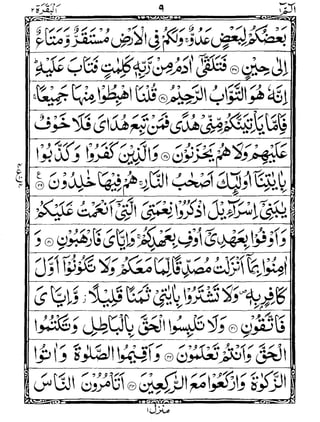 الٓمّٓ ١ ٩ البقرة ٢
بَعْضُكُمْ لِبَعْضٍ عَدُوٌّ ۚ وَلَكُمْ فِي الْاَرْضِ مُسْتَقَرٌّ وَّمَتَاعٌ
اِلٰى حِيْنٍ ﴿٣٦﴾ فَتَلَقّٰٓى اٰدَمُ مِنْ رَّبِّهٖ كَلِمٰتٍ فَتَابَ عَلَيْهِ ؕ
اِنَّهٗ هُوَ التَّوَّابُ الرَّحِيْمُ ﴿٣٧﴾ قُلْنَا اهْبِطُوْا مِنْهَا جَمِيْعًا ۚ
فَاِمَّا يَاْتِيَنَّكُمْ مِّنِّيْ هُدًى فَمَنْ تَبِعَ هُدَايَ فَلَا خَوْفٌ
عَلَيْهِمْ وَلَا هُمْ يَحْزَنُوْنَ ﴿٣٨﴾ وَالَّذِيْنَ كَفَرُوْا وَكَذَّبُوْا
بِاٰيٰتِنَآ اُولٰٓئِكَ اَصْحٰبُ النَّارِ ۚ هُمْ فِيْهَا خٰلِدُوْنَ ﴿٣٩﴾
يٰبَنِيْٓ اِسْرَآءِيْلَ اذْكُرُوْا نِعْمَتِيَ الَّتِيْٓ اَنْعَمْتُ عَلَيْكُمْ
وَاَوْفُوْا بِعَهْدِيْٓ اُوْفِ بِعَهْدِكُمْ ۚ وَاِيَّايَ فَارْهَبُوْنِ ﴿٤٠﴾ وَ
اٰمِنُوْا بِمَآ اَنْزَلْتُ مُصَدِّقًا لِّمَا مَعَكُمْ وَلَا تَكُوْنُوْٓا اَوَّلَ
كَافِرٍۭ بِهٖ ۪ وَلَا تَشْتَرُوْا بِاٰيٰتِيْ ثَمَنًا قَلِيْلًا ؗ وَّاِيَّايَ
فَاتَّقُوْنِ ﴿٤١﴾ وَلَا تَلْبِسُوا الْحَقَّ بِالْبَاطِلِ وَتَكْتُمُوا
الْحَقَّ وَاَنْتُمْ تَعْلَمُوْنَ ﴿٤٢﴾ وَاَقِيْمُوا الصَّلٰوةَ وَاٰتُوا
الزَّكٰوةَ وَارْكَعُوْا مَعَ الرّٰكِعِيْنَ ﴿٤٣﴾ اَتَاْمُرُوْنَ النَّاسَ
منزل ١